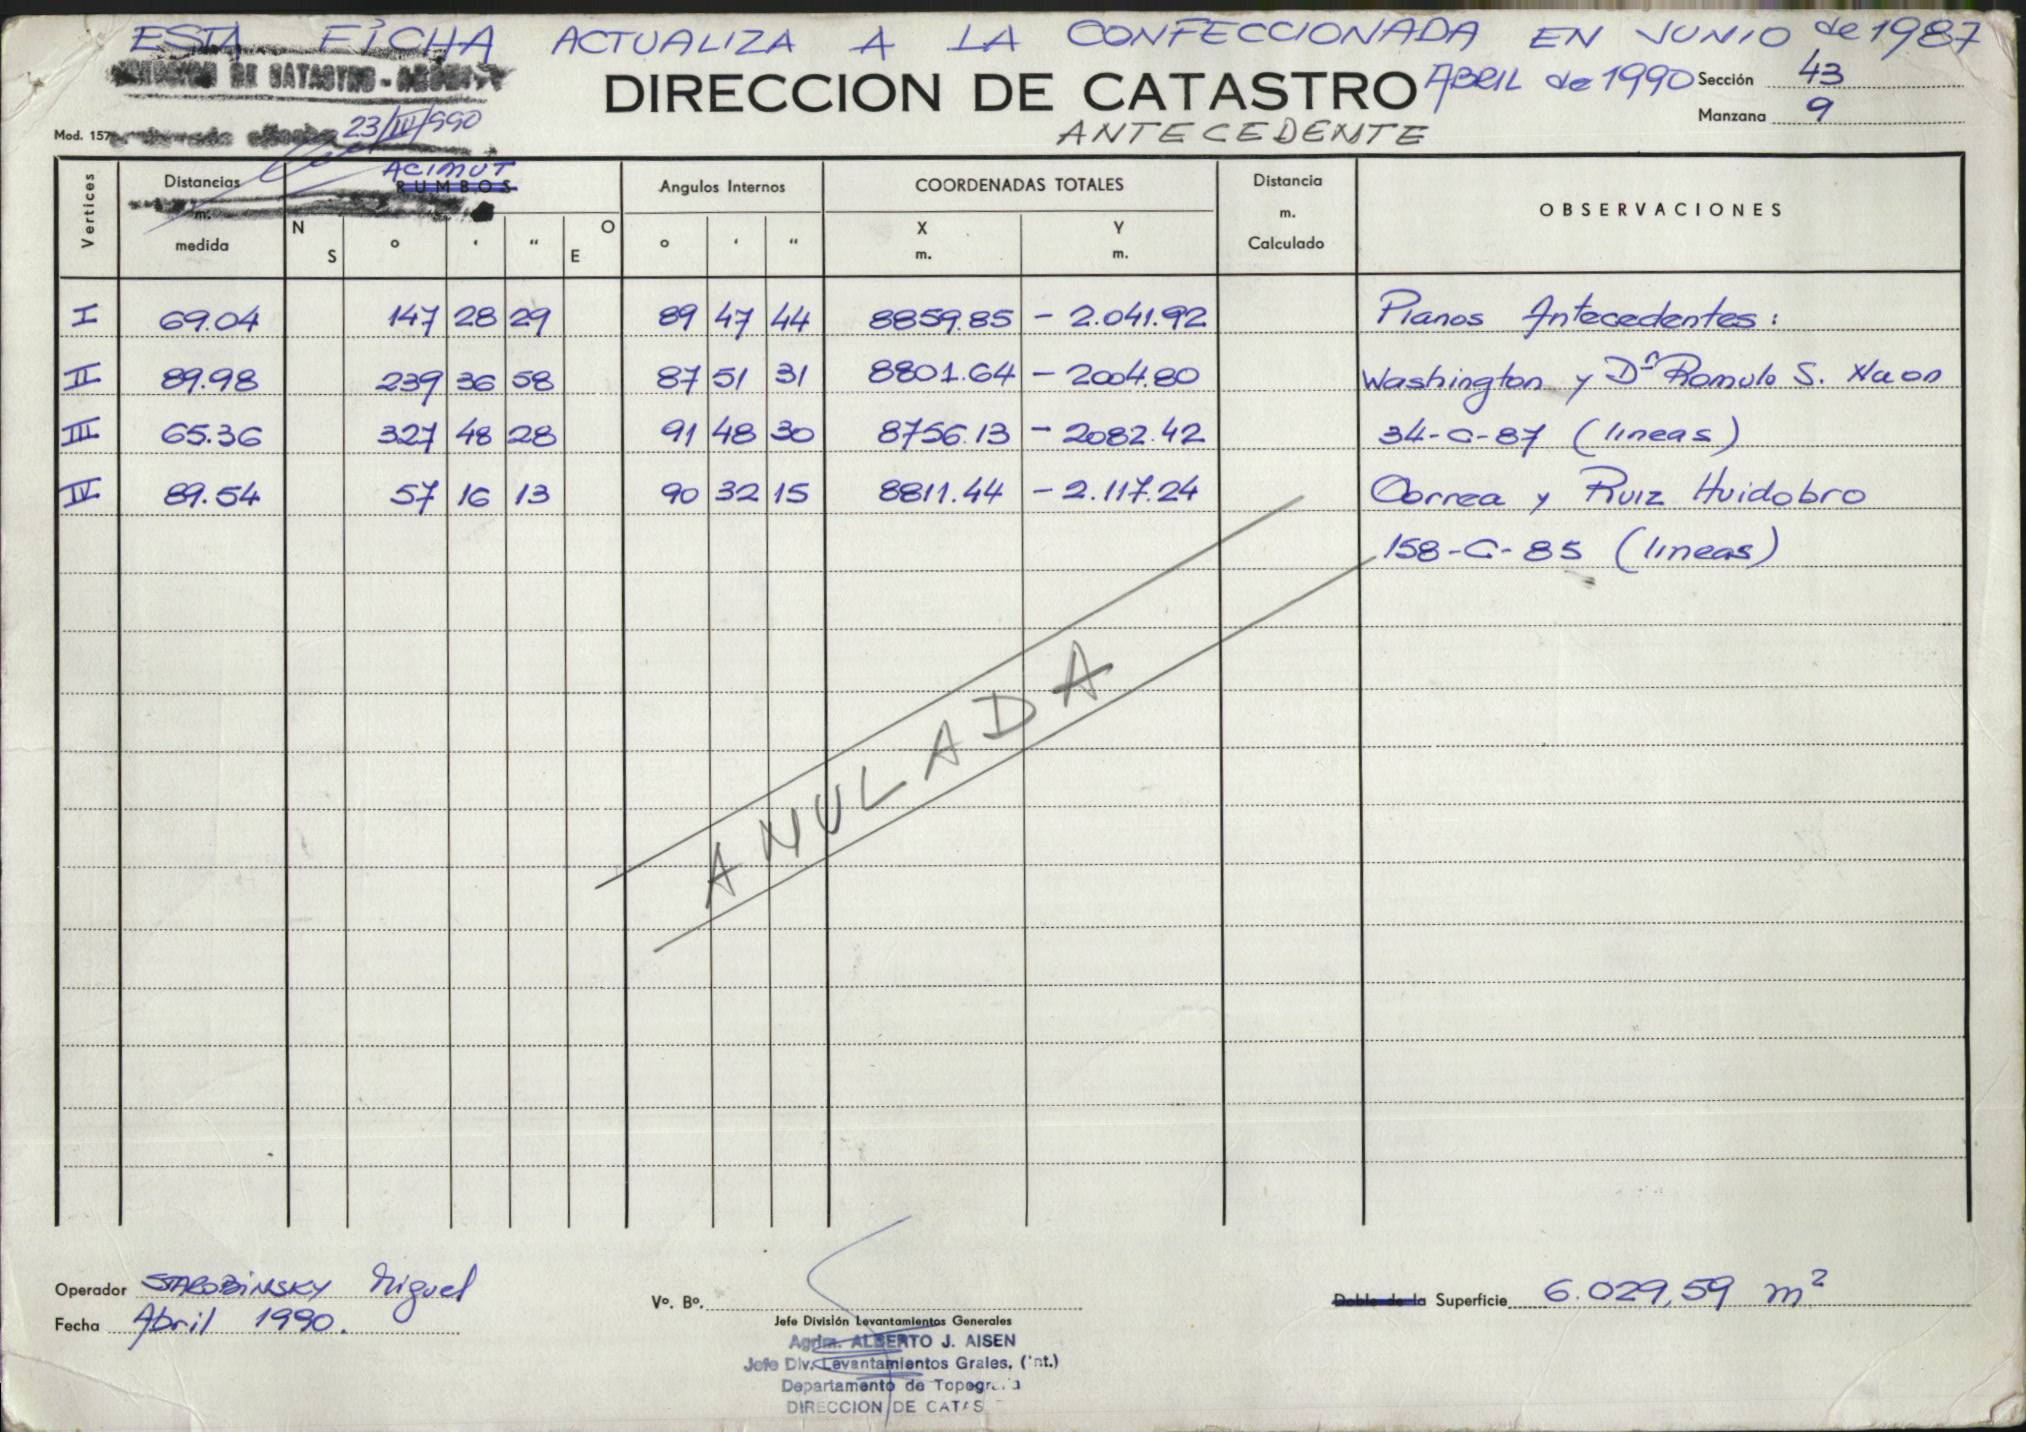 ESTA FICHA ACTUALIZA A LA CONFECCIONADA EN JUNIO de 1987
DIRECCION DE CATASTRO
DIRECCION DE CATASTRO ABRIL de 1990 Sección 43
ANTECEDENTE Manzana 9
Mod. 157 23/III/990
Vertices Distancias m. medida ACIMUT RUMBOS Angulos Internos COORDENADAS TOTALES Distancia m. Calculado OBSERVACIONES
N S ° ' " E O ° ' " X m. Y m.
I 69.04 147 28 29 89 47 44 8859.85 - 2.041.92 Planos Antecedentes:
II 89.98 239 36 58 87 51 31 8801.64 - 2004.80 Washington y Dr Romulo S. Naon
III 65.36 327 48 28 91 48 30 8756.13 - 2082.42 34-C-87 (lineas)
IV 89.54 57 16 13 90 32 15 8811.44 - 2.117.24 Correa y Ruiz Huidobro
158-C-85 (lineas)
ANULADA
Operador STAROBINSKY Miguel Vº. Bº. Doble de la Superficie 6.029,59 m²
Fecha Abril 1990.
Jefe División Levantamientos Generales
Agrim. ALBERTO J. AISEN
Jefe Div. Levantamientos Grales. (Int.)
Departamento de Topografía
DIRECCION DE CATAS